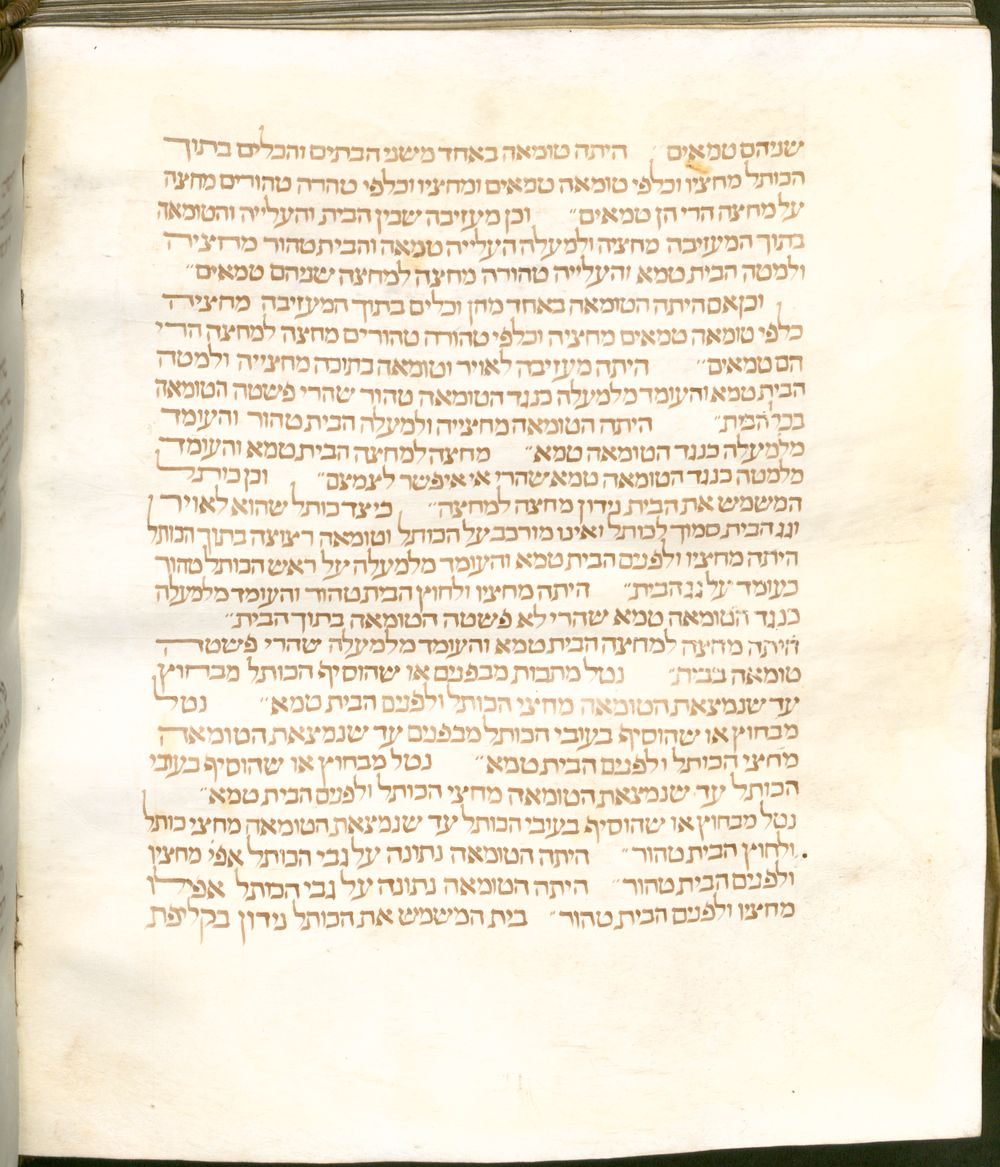 שניהם טמאים״ היתה טומאה באחד משני הבתים והכלים בתוך
הכותל מחציו וכלפי טומאה טמאים ומחציו וכלפי טהרה טהורים מחצה
על מחצה הרי הן טמאים״ וכן מעזיבה שבין הבית והעלייה והטומאה
בתוך המעזיבה מחציה ולמעלה העלייה טמאה והבית טהור מחציה
ולמטה הבית טמא והעלייה טהורה מחצה למחצה שניהם טמאים״
וכן אם היתה הטומאה באחד מהן וכלים בתוך המעזיבה מחציה
כלפי טומאה טמאים מחציה וכלפי טהורה טהורים מחצה למחצה הרי
הם טמאים״ היתה מעזיבה לאויר וטומאה בתוכה מחצייה ולמטה
הבית טמא והעומד מלמעלה כנגד הטומאה טהור שהרי פשטה הטומאה
בכל הבית״ היתה הטומאה מחצייה ולמעלה הבית טהור והעומד
מלמעלה כנגד הטומאה טמא״ מחצה למחצה הבית טמא והעומד
מלמטה כנגד הטומאה טמא שהרי אי איפשר לצמצם״ וכן כותל
המשמש את הבית נידון מחצה למחצה״ כיצד כותל שהוא לאויר
וגג הבית סמוך לכותל ואינו מורכב על הכותל וטומאה רצוצה בתוך הכותל
היתה מחציו ולפנים הבית טמא והעומד מלמעלה על ראש הכותל טהור
כעומד על גג הבית״ היתה מחציו ולחוץ הבית טהור והעומד מלמעלה
כנגד הטומאה טמא שהרי לא פשטה הטומאה בתוך הבית״
היתה מחצה למחצה הבית טמא והעומד מלמעלה שהרי פשטה
טומאה בבית״ נטל מתבות מבפנים או שהוסיף הכותל מבחוץ
עד שנמצאת הטומאה מחצי הכותל ולפנים הבית טמא״ נטל
מבחוץ או שהוסיף בעובי הכותל מבפנים עד שנמצאת הטומאה
מחצי הכותל ולפנים הבית טמא״ נטל מבחוץ או שהוסיף בעובי
הכותל עד שנמצאת הטומאה מחצי הכותל ולפנים הבית טמא״
נטל מבחוץ או שהוסיף בעובי הכותל עד שנמצאת הטומאה מחצי כותל
ולחוץ הבית טהור״ היתה הטומאה נתונה על גבי הכותל אפי׳ מחציו
ולפנים הבית טהור״ היתה הטומאה נתונה על גבי הכותל אפילו
מחציו ולפנים הבית טהור״ בית המשמש את הכותל נידון בקליפת